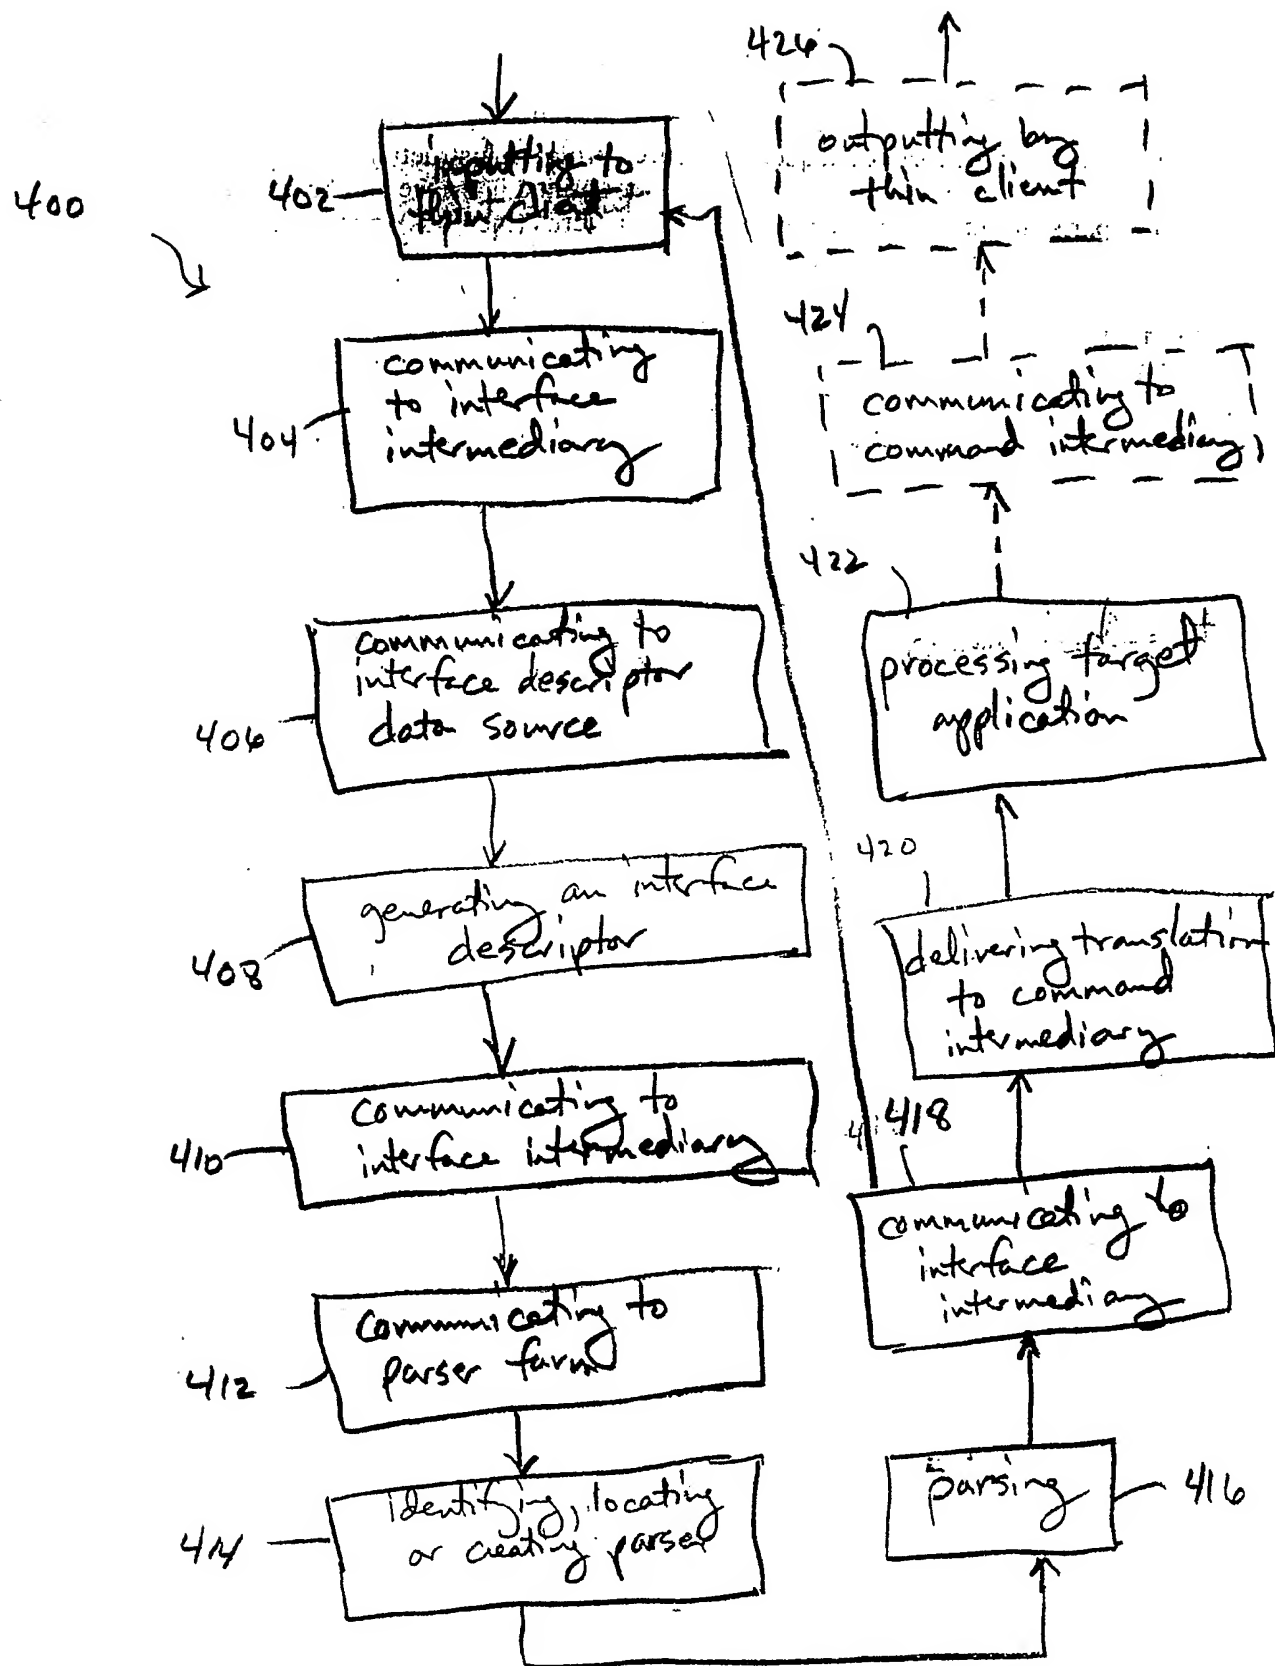 400
402
inputting to
thin client
404
communicating
to interface
intermediary
406
communicating to
interface descriptor
data source
408
generating an interface
descriptor
410
communicating to
interface intermediary
412
communicating to
parser farm
414
identifying, locating
or creating parser
416
parsing
418
communicating to
interface
intermediary
420
delivering translation
to command
intermediary
422
processing target
application
424
communicating to
command intermediary
426
outputting by
thin client